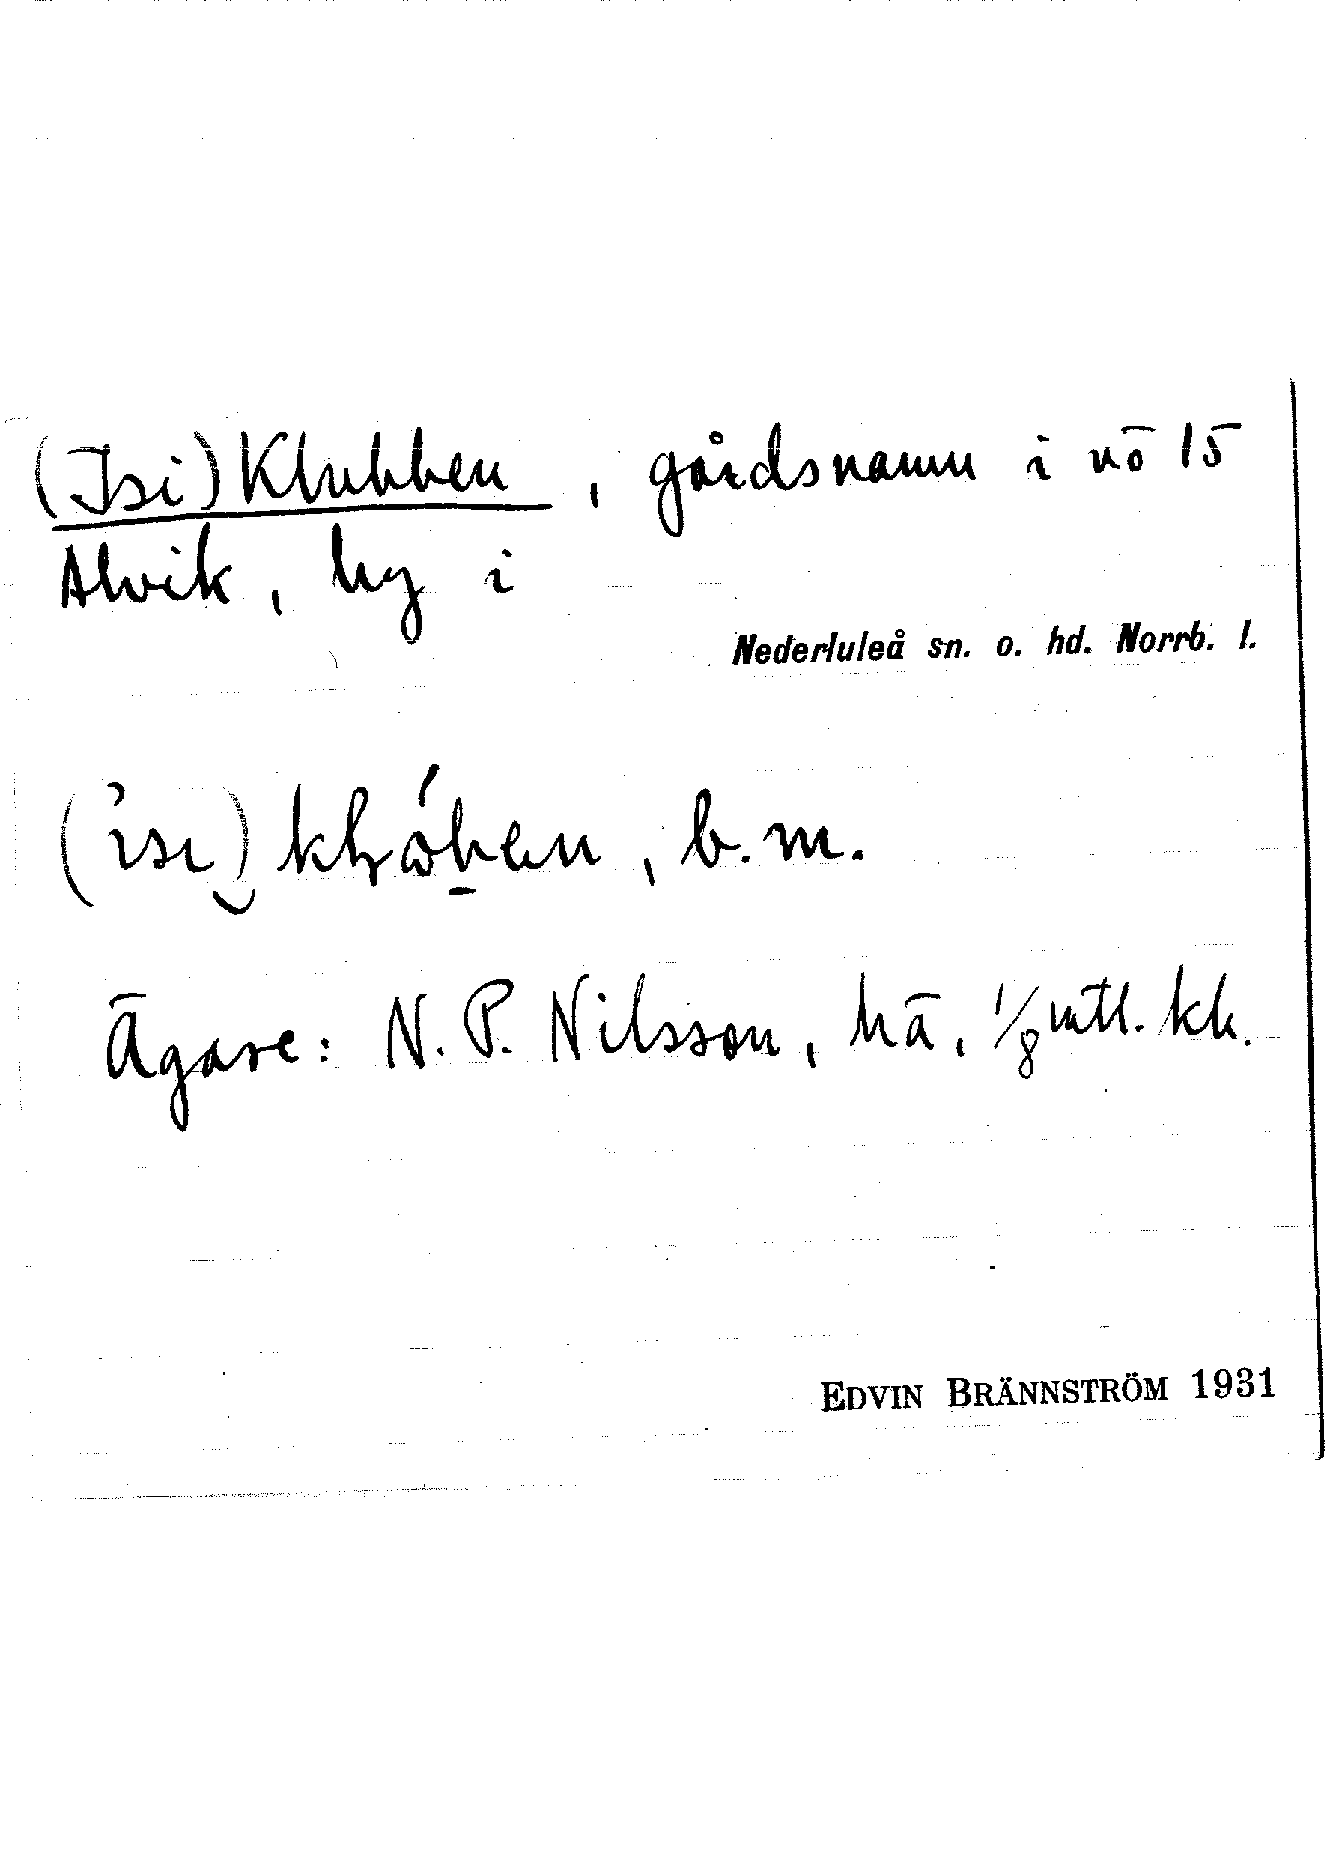 (Isi)Klubben, gårdsnamn i nō 15
Alvik, by i
Nederluleå sn. o. hd. Norrb. l.
b. m.
Ägare: N. P. Nilsson, hä, 1/8 mtl. kk.
EDVIN BRÄNNSTRÖM 1931